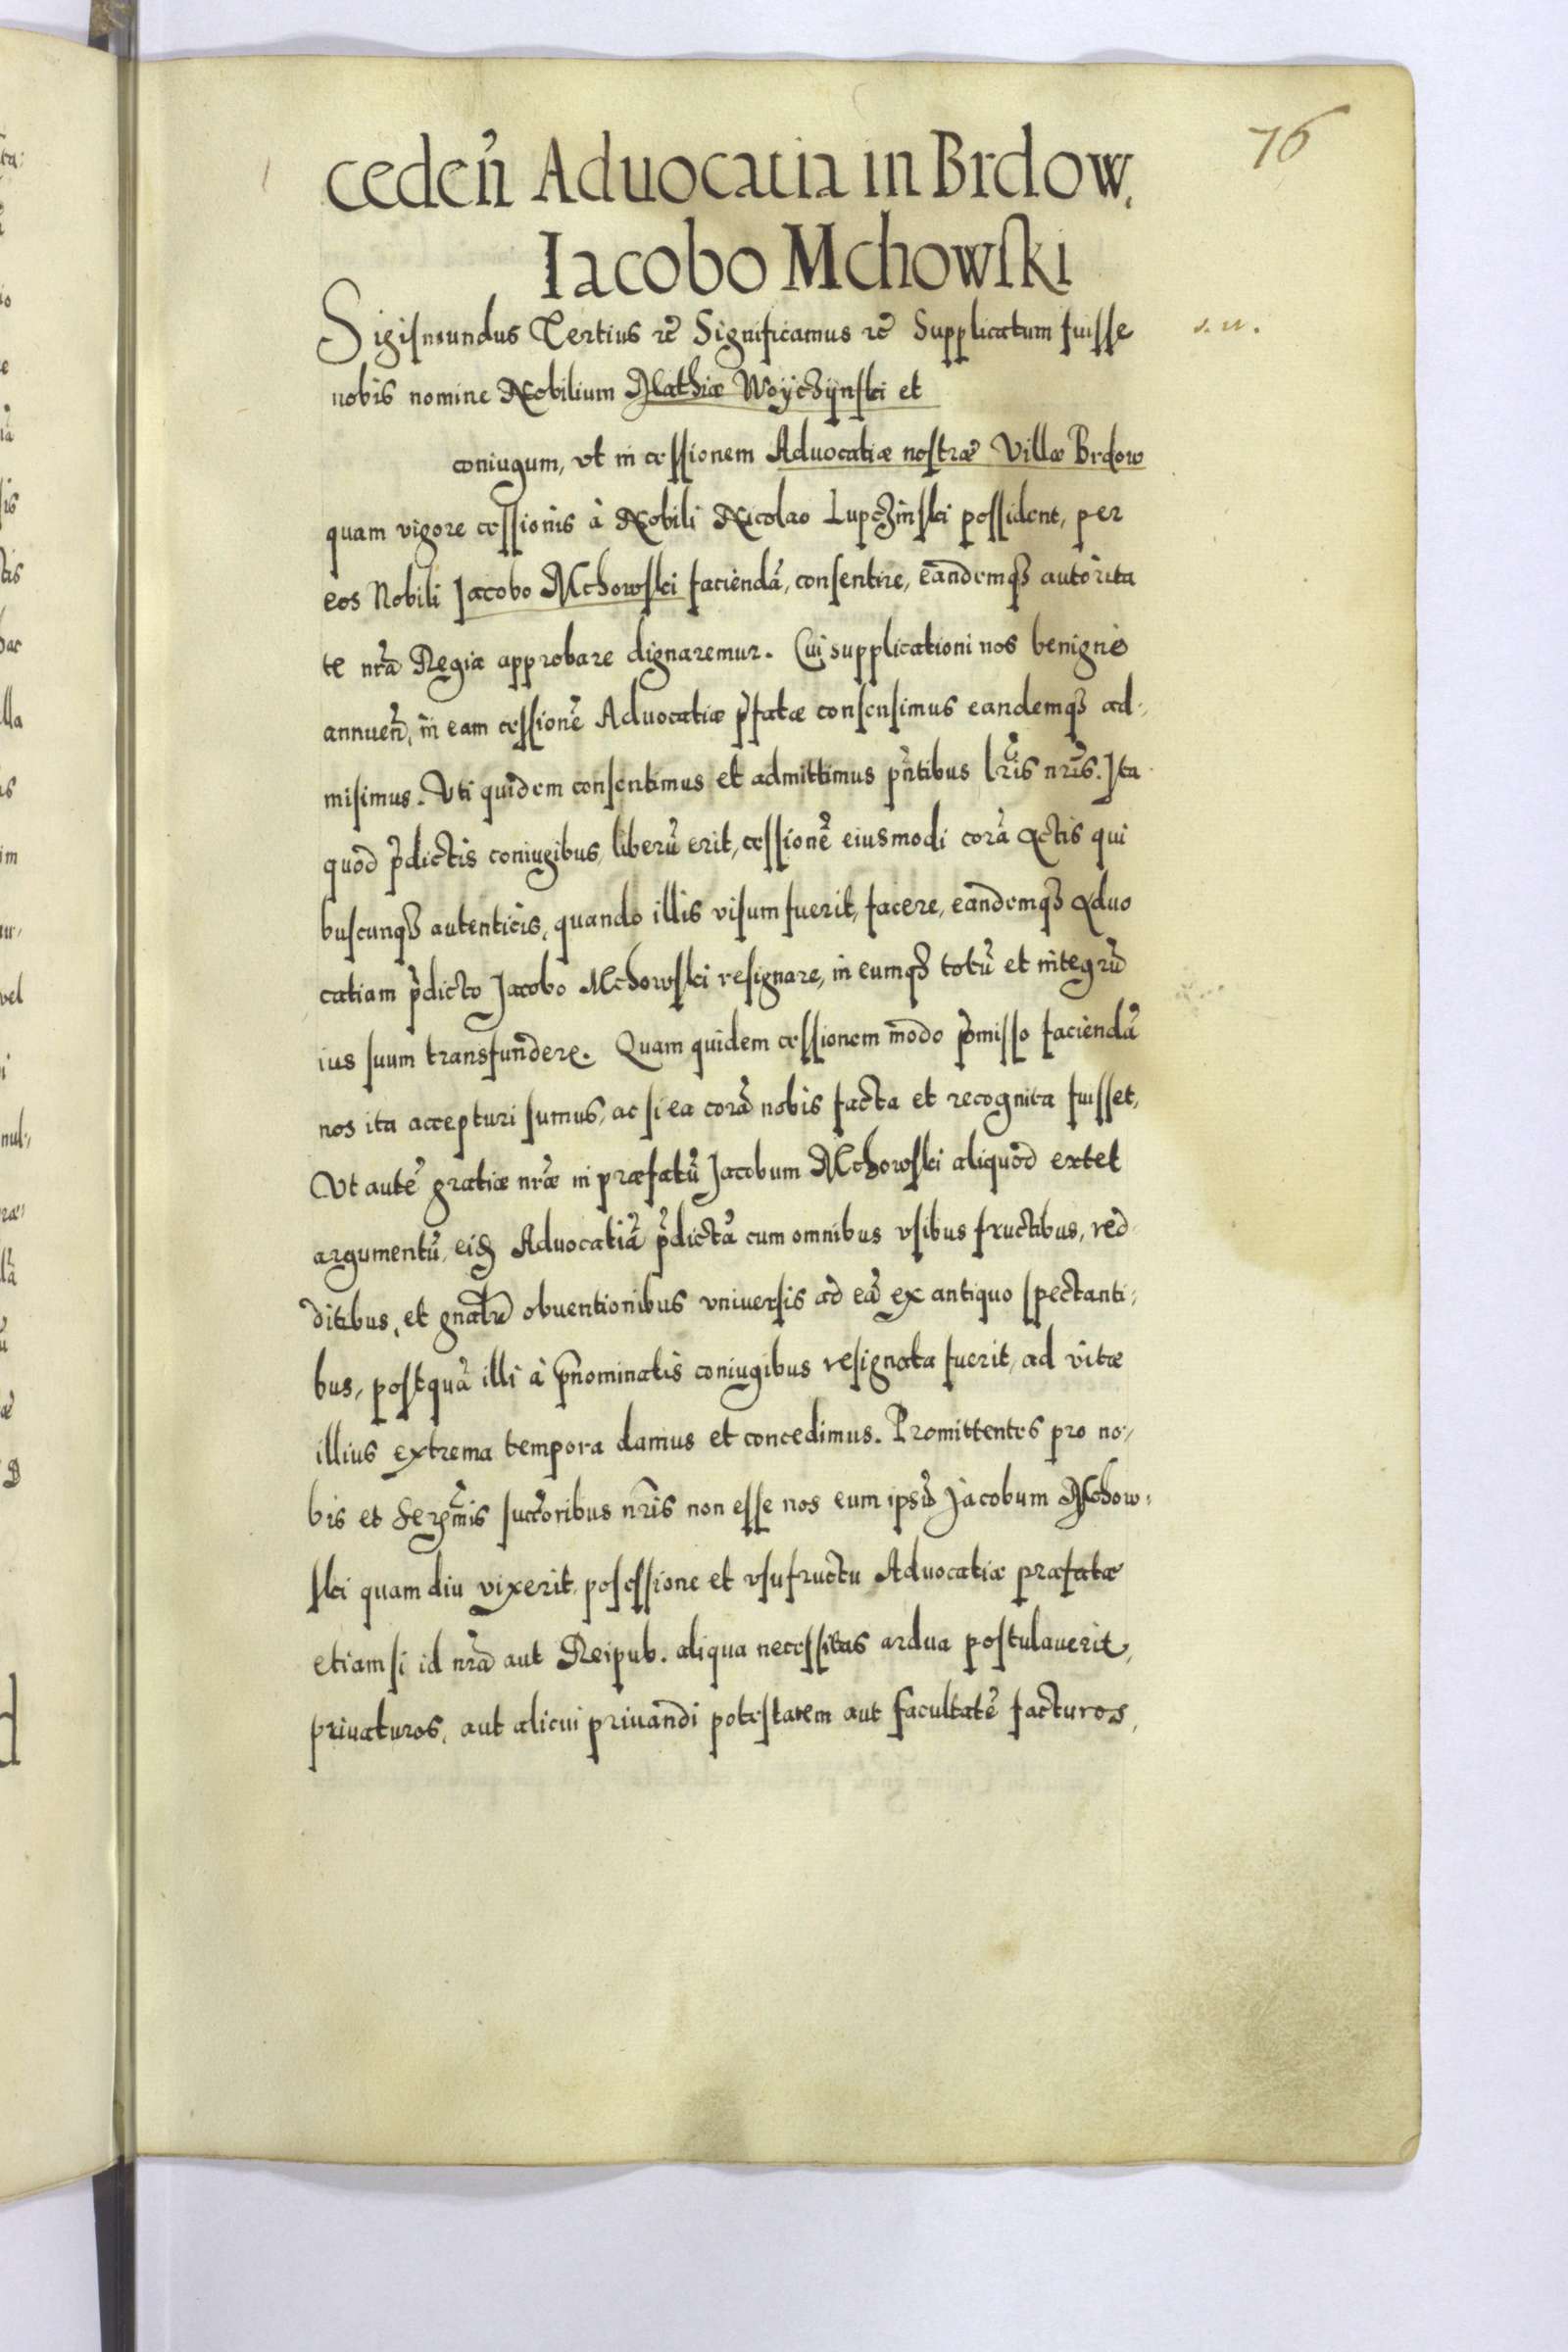 76
cedeñ Aduocatia in Brdow,
Iacobo Mchowſki
Sigiſmundus Tertius rc̃ Significamus rc̃ Supplicatum fuiſſe
s. u.
nobis nomine Nobilium Mathiæ Woyczÿnſki et
coniugum, vt in ceſſionem Aduocatiæ noſtræ Villæ Brdow
quam vigore ceſſionis à Nobili Nicolao Lupczinſki poſſident, per
eos Nobili Jacobo Mchowſki faciendã, conſentire, eandemqȝ autorita
te nr̃a Regia approbare dignaremur. Cui supplicationi nos benignè
annueñ, in eam ceſſionẽ Aduocatiæ p̃fatæ conſenſimus eandemqȝ ad-
miſimus. Vti quidem conſentimus et admittimus pñtibus lr̃is nr̃is. Ita
quod p̃dictis coniugibus, liberũ erit, ceſſionẽ eiusmodi corã Actis qui
buſcunqȝ autenticis, quando illis viſum fuerit, facere, eandemqȝ Aduo
catiam p̃dicto Jacobo Mchowſki reſignare, in eumqȝ totũ et integrũ
ius ſuum transfundere. Quam quidem ceſſionem modo p̃miſſo faciendã
nos ita accepturi ſumus, ac ſi ea corã nobis facta et recognita fuiſſet,
Vt autẽ gratiæ nr̃æ in præfatũ Jacobum Mchowſki aliquod extet
argumentũ, eiđ Aduocatiã p̃dictã cum omnibus vſibus fructibus, red-
ditibus, et gnalr̃ obuentionibus vniuerſis ad eã ex antiquo ſpectanti-
bus, poſtquã illi à p̃nominatis coniugibus reſignata fuerit, ad vitæ
illius extrema tempora damus et concedimus. Promittentes pro no-
bis et Serm̃is ſucc̃oribus nr̃is non eſſe nos eum ipſũ Jacobum Mchow-
ſki quam diu vixerit, poſeſſione et vſufructu Aduocatiæ præfatæ
etiamſi id nr̃a aut Reipub. aliqua neceſſitas ardua poſtulauerit,
priuaturos, aut alicui priuandi poteſtatem aut facultatẽ facturos,